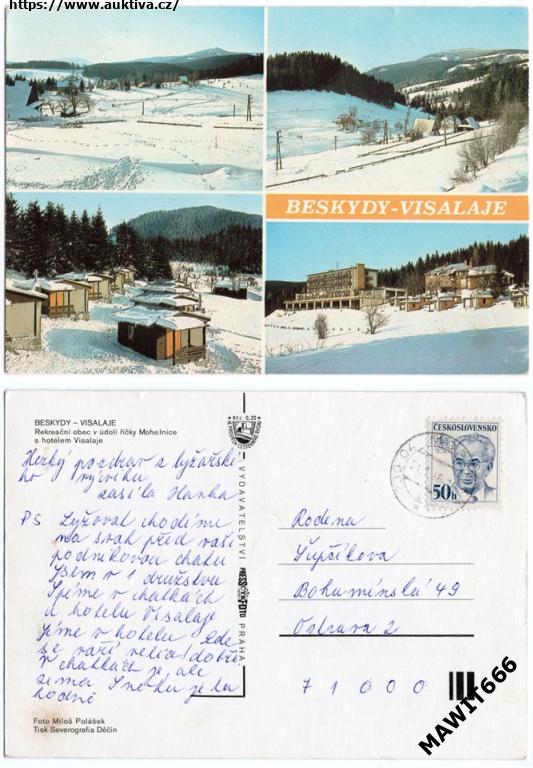 https://www.auktiva.cz/
BESKYDY-VISALAJE
BESKYDY – VISALAJE
Rekreační obec v údolí říčky Mohelnice
s hotelem Visalaje
Kčs 0,20
VYDAVATELSTVÍ
PRESSFOTO
PRAHA
ČESKOSLOVENSKO
50h
Hezký pozdrav z lyžařské
ho výcviku
zasílá Hanka
PS Lyžovat chodíme
na svah před vaši
podnikovou chatu
Jsem v 1 družstvu
Spíme v chatkách
u hotelu Visalaje
Jíme v hotelu kde
se vaří velice dobře
v chatkách je, ale
zima Sněhu je ho
hodně
Rodina
Šupčíkova
Bohumínská 49
Ostrava 2
7 1 0 0 0
Foto Miloš Polášek
Tisk Severografia Děčín
MAWIT666